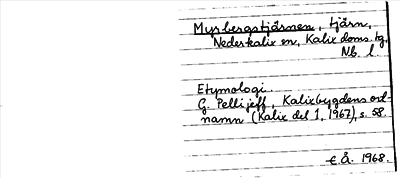 Myrbergstjärnen, tjärn,
Nederkalix sn, Kalix doms. tg,
Nb. l.
Etymologi.
G. Pellijeff, Kalixbygdens ort-
namn (Kalix del 1, 1967), s. 58.
E.Å. 1968.